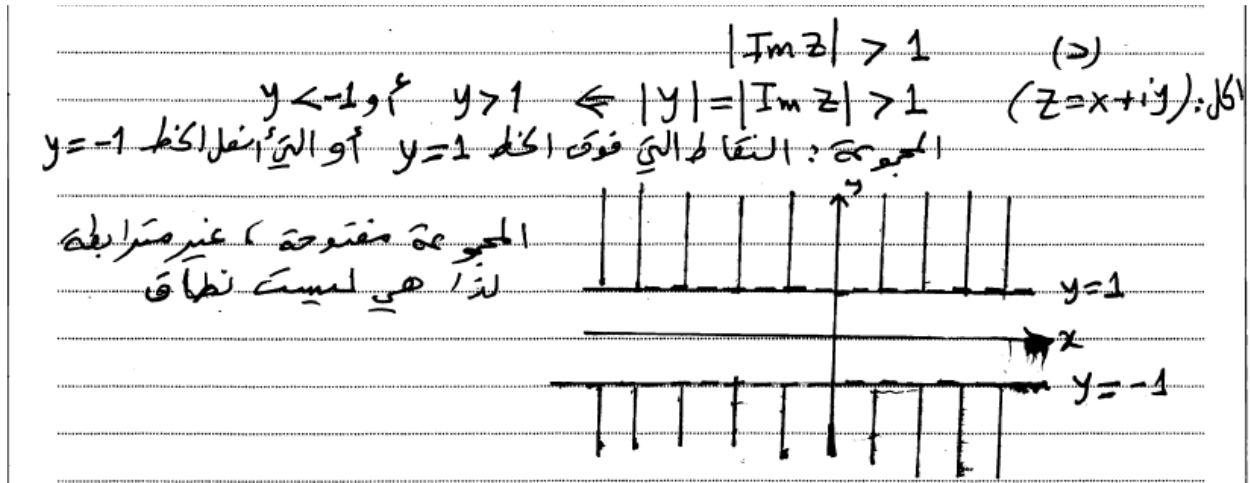 (د) |Im z| > 1
الحل: (z=x+iy) |y|=|Im z| > 1 ⇐ y>1 أو y<-1
المجموعة: النقاط التي فوق الخط y=1 أو التي أسفل الخط y=-1
y
المجموعة مفتوحة، غير مترابطة
لذا هي ليست نطاق
y=1
x
y=-1